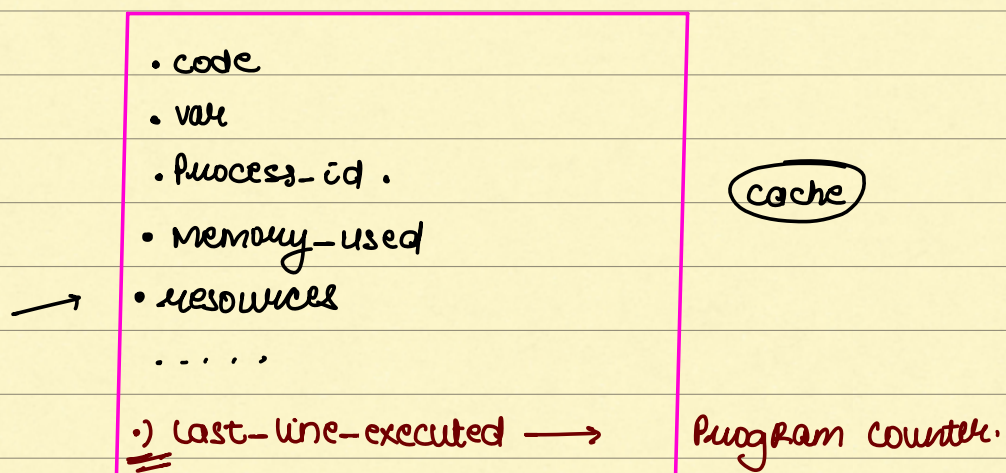 • code
• var
• Process_id .
cache
• Memory_used
• resources
.....
•) Last_line_executed → Program counter.